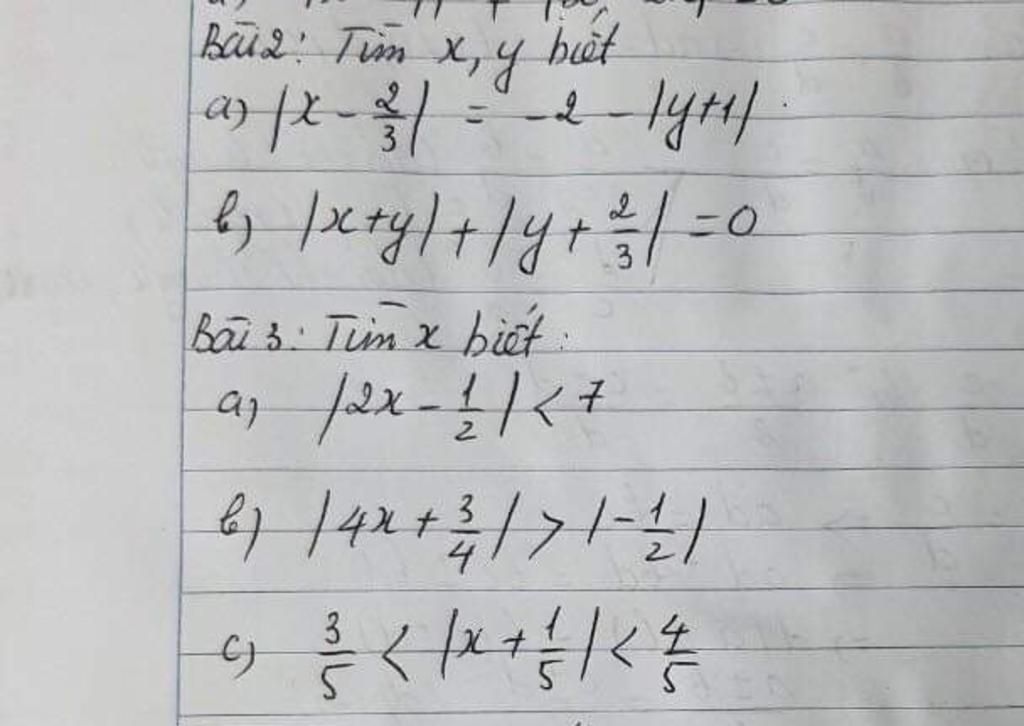 Bài 2: Tìm x, y biết
a) |x - 2/3| = -2 - |y+1|.
b) |x+y| + |y + 2/3| = 0
Bài 3: Tìm x biết:
a) |2x - 1/2| < 7
b) |4x + 3/4| > |-1/2|
c) 3/5 < |x + 1/5| < 4/5